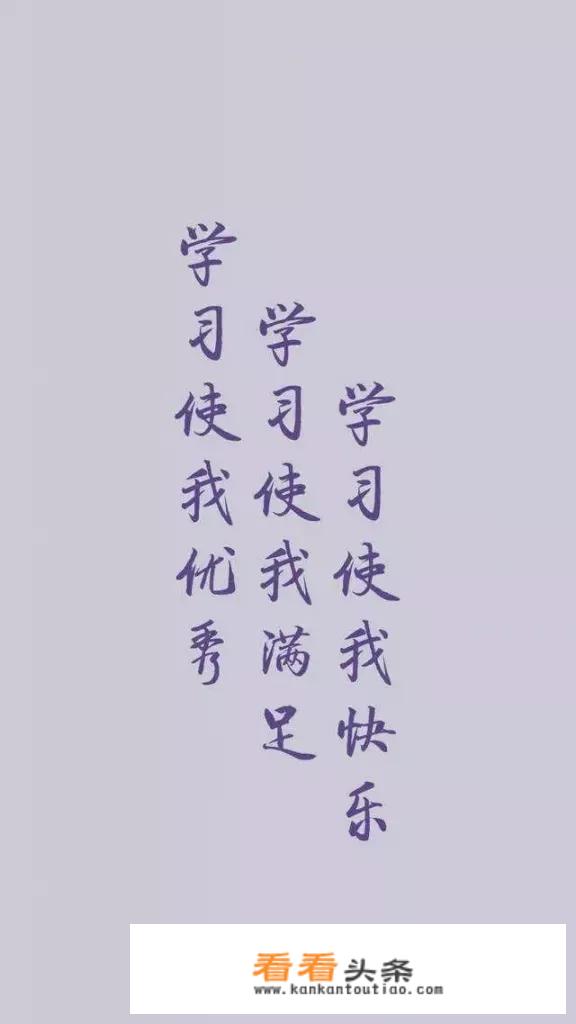 学习使我优秀
学习使我满足
学习使我快乐
看看头条
www.kankantoutiao.com